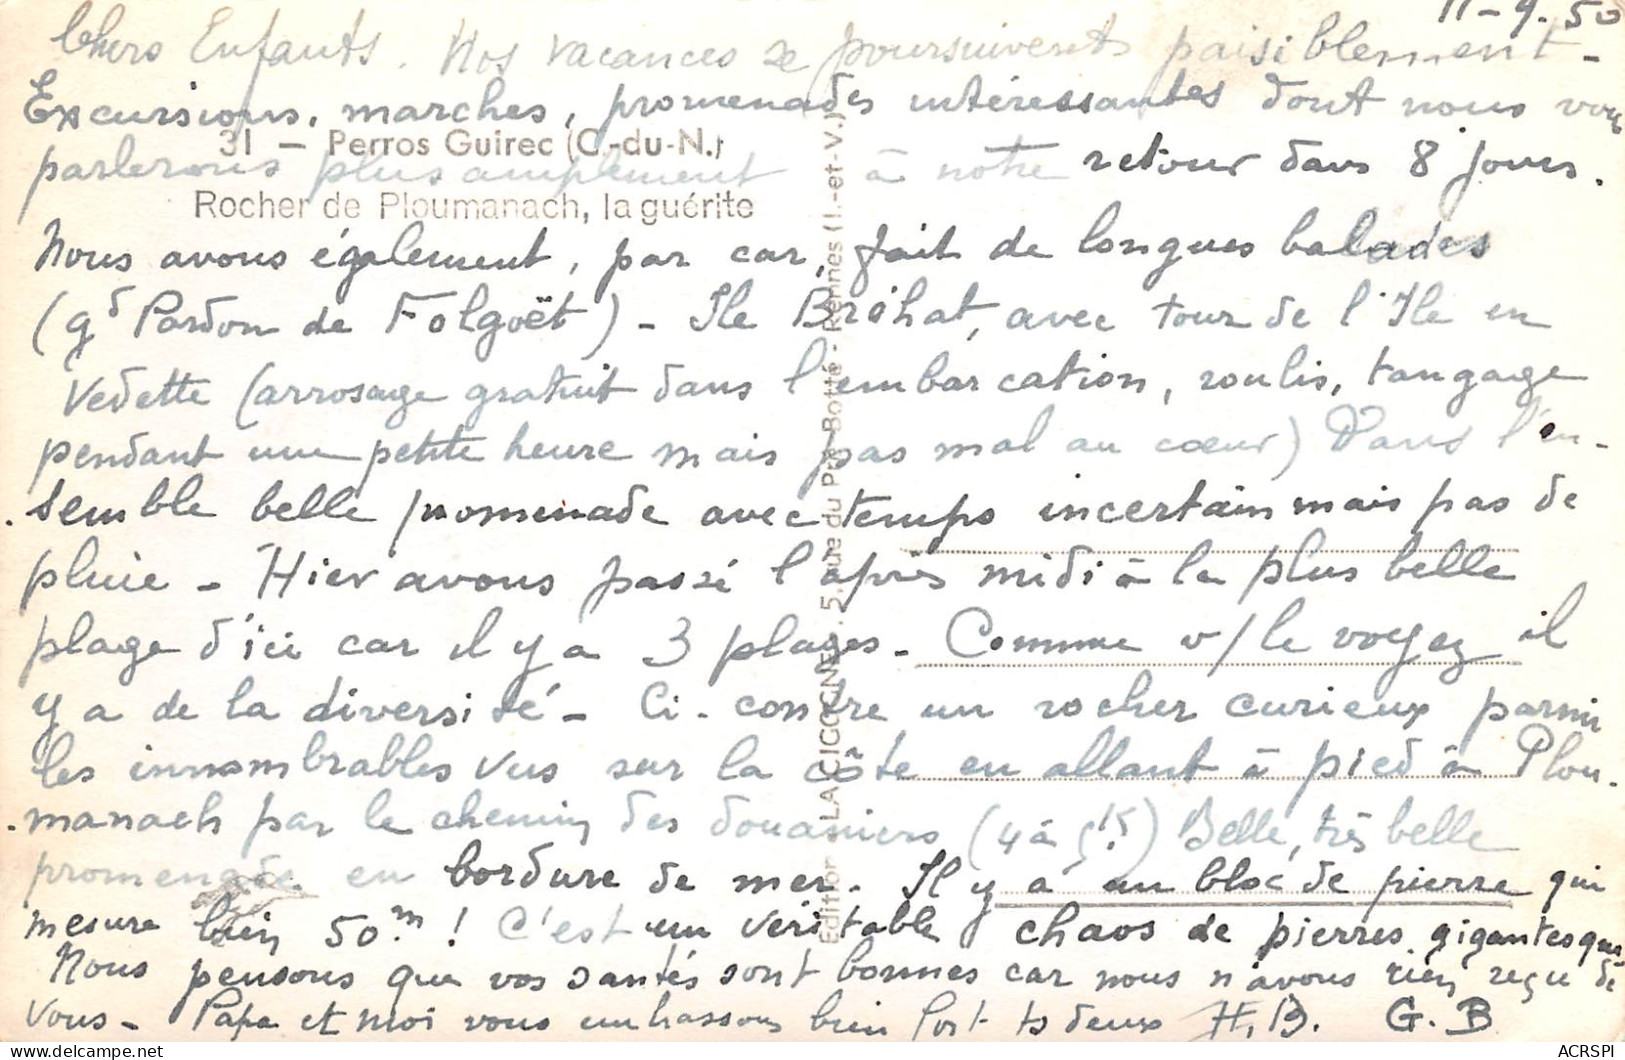 11-9.50
Chers Enfants. Nos vacances se poursuivent paisiblement -
Excursions, marches, promenades intéressantes dont nous vous
31 — Perros Guirec (C.-du-N.)
parlerons plus amplement à notre retour dans 8 jours.
Rocher de Ploumanach, la guérite
Nous avons également, par car, fait de longues balades
(gd Pardon de Folgoët) - Ile Bréhat, avec tour de l'Ile en
vedette (arrosage gratuit dans l'embarcation, roulis, tangage
pendant une petite heure mais pas mal au cœur) Dans l'en-
semble belle promenade avec temps incertain mais pas de
pluie - Hier avons passé l'après midi à la plus belle
plage d'ici car il y a 3 plages - Comme v/ le voyez il
y a de la diversité - Ci-contre un rocher curieux parmi
les innombrables vus sur la côte en allant à pied à Plou-
manach par le chemin des douaniers (4 à 5 K) Belle, très belle
promenade en bordure de mer. Il y a un bloc de pierre qui
mesure bien 50m ! C'est un véritable chaos de pierres gigantesques
Nous pensons que vos santés sont bonnes car nous n'avons rien reçu de
vous - Papa et moi vous embrassons bien fort ts deux H.B. G.B
Edition LA CIGOGNE, 5, rue du Pré-Botté - Rennes (I.-et-V.)
ACRSPI